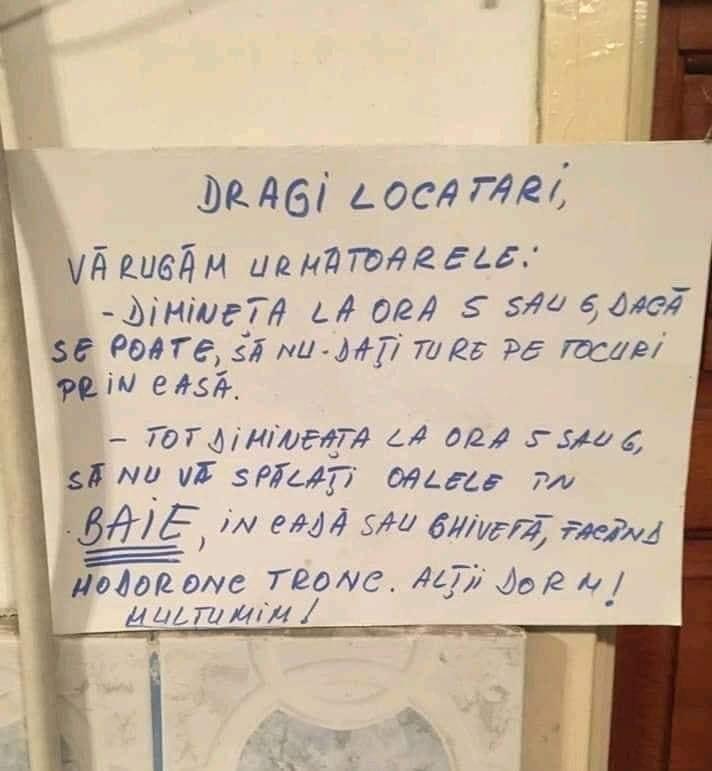 DRAGI LOCATARI,
VĂ RUGĂM URMATOARELE:
- DIMINEȚA LA ORA 5 SAU 6, DACĂ
SE POATE, SĂ NU-DAȚI TURE PE TOCURI
PRIN CASĂ.
- TOT DIMINEAȚA LA ORA 5 SAU 6,
SĂ NU VĂ SPĂLAȚI OALELE ÎN
BAIE, IN CADĂ SAU GHIVETĂ, FACÂND
HODORONC TRONC. ALȚII DORM!
MULTUMIM!